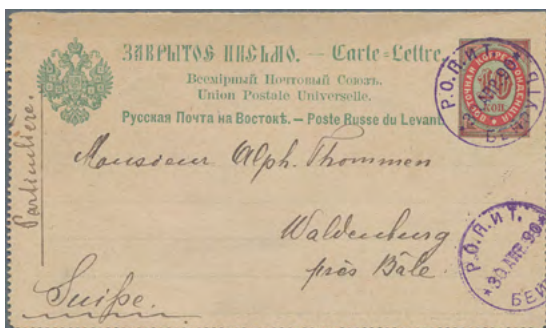 ЗАКРЫТОЕ ПИСЬМО. — Carte-Lettre.
Всемірный Почтовый Союзъ.
Union Postale Universelle.
Русская Почта на Востокѣ. — Poste Russe du Levant
ВОСТОЧНАЯ КОРРЕСПОНДЕНЦІЯ
10
КОП.
Р.О.П.иТ.
БЕЙРУТЪ
Particuliere.
Monsieur Alph. Thommen
Waldenburg
près Bâle.
Suisse.
Р.О.П.иТ.
*30 АПР. 96*
БЕЙ